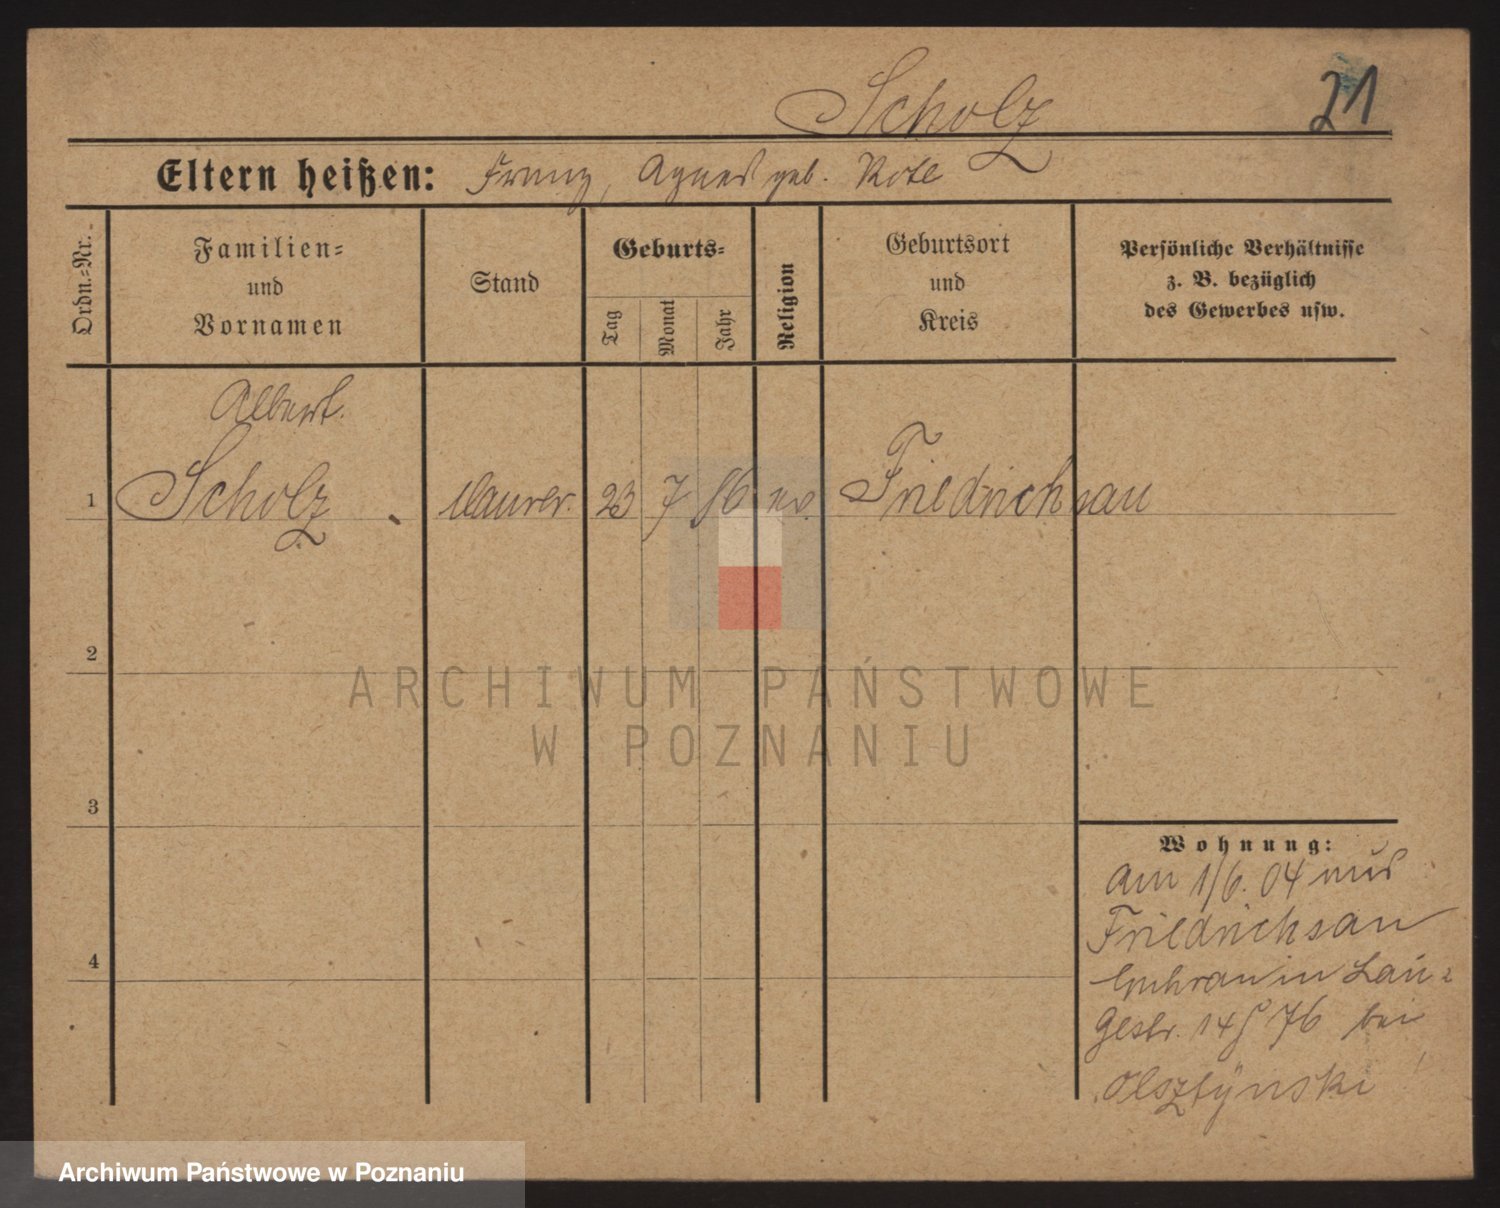 Scholz 21
Eltern heißen: Franz, Agnes geb. Rote
Ordn.-Nr.
Familien-
und
Vornamen
Stand
Geburts-
Tag
Monat
Jahr
Religion
Geburtsort
und
Kreis
Persönliche Verhältnisse
z. B. bezüglich
des Gewerbes usw.
Albert.
1 Scholz Maurer. 23 7 86 ev. Friedrichsau
2
3
4
Wohnung:
Am 1/6. 04 aus
Friedrichsau
Guhrau in
14 76 bei
Olsztÿnski
ARCHIWUM PAŃSTWOWE
W POZNANIU
Archiwum Państwowe w Poznaniu